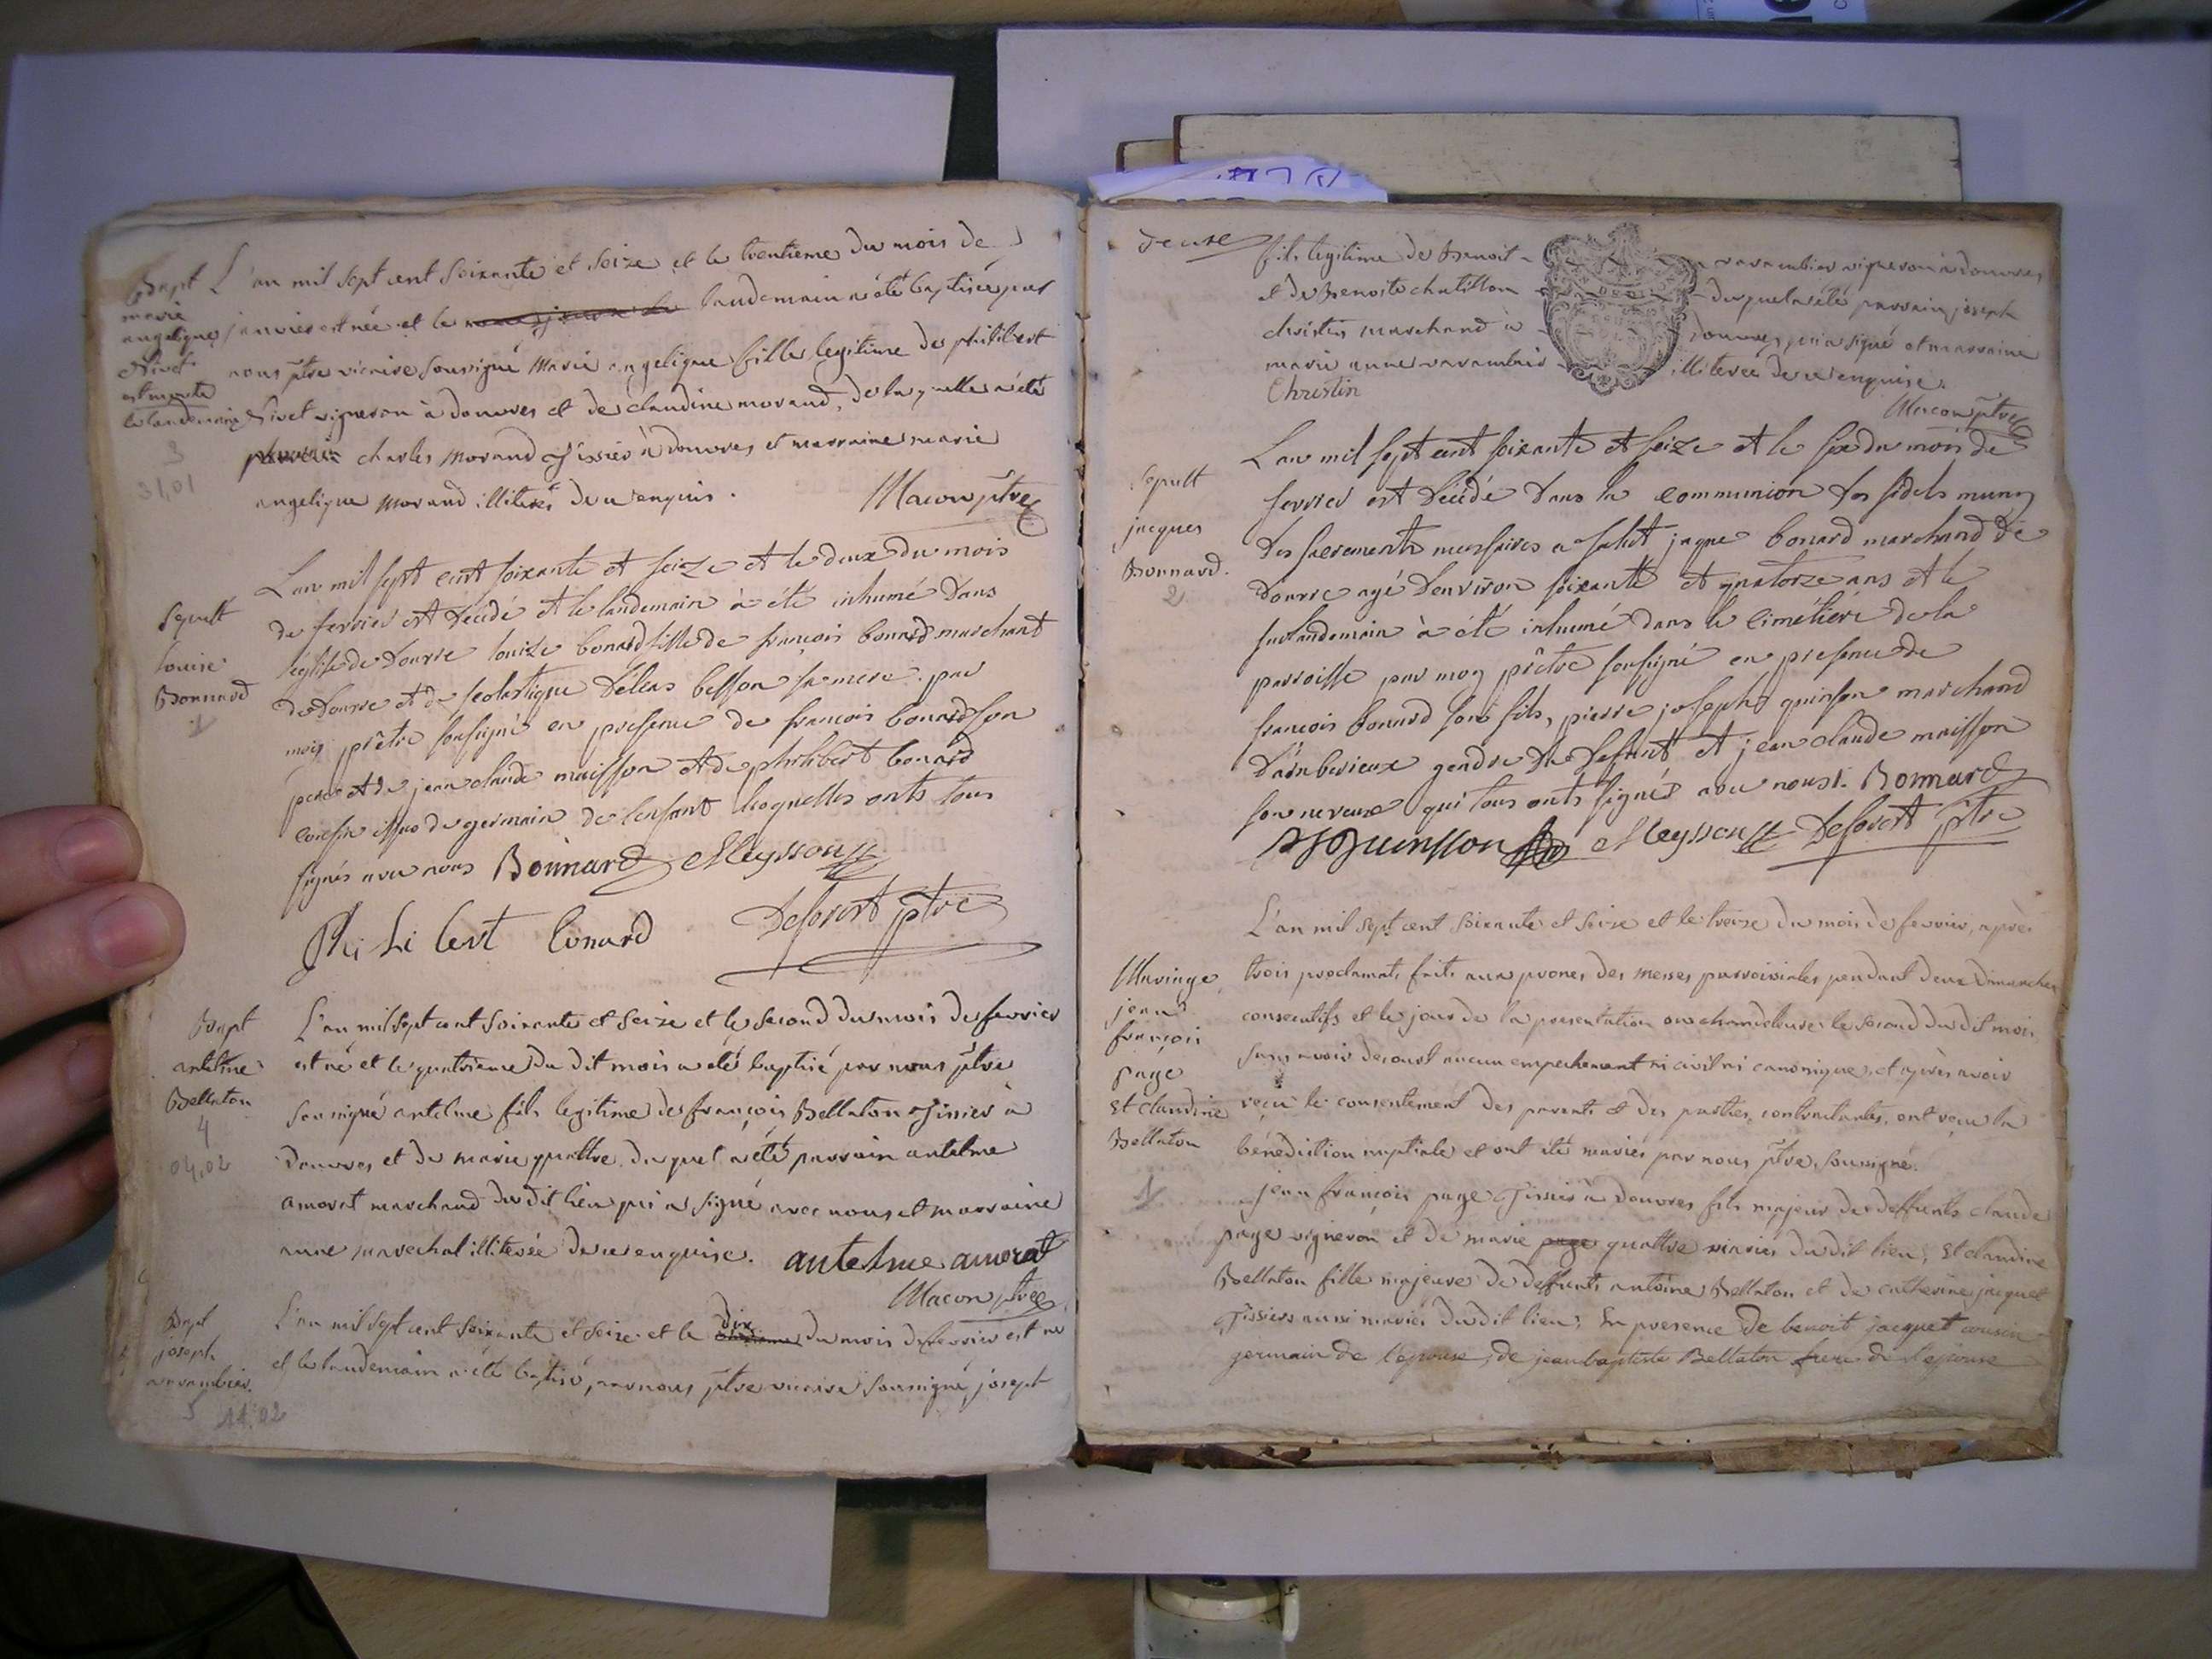 Bapt
marie
angelique
Sivet
est morte
le landemain
3
31,01
L'an mil sept cent soixante et seize et le trentieme du mois de
janvier est née et le landemain a été baptisée par
nous ptre vicaire soussigné marie angelique fille legitime de philibert
Sivet vigneron à douvres et de claudine morand, de laquelle a été
parrain charles morand Tissier à douvres et marraine marie
angelique morand illiterés de ce enquis.
Macon ptre
Sepult
louise
Bonnard
1
L'an mil sept cent soixante et seize et le deux du mois
de fevrier est décédé et le landemain à été inhumé dans
l'église de douvre louize bonard fille de françois bonard marchant
de douvre et de scolastique besson sa mere par
moy prêtre soussigné en presence de francois bonard son
pere et de jean claude maisson et de philibert bonard
cousin issus de germain de l'enfant lesquelles onts tous
signés avec nous Bonnard Meysson
Phi Li bert bonard Deforest ptre
Bapt
antelme
Bellaton
4
04,02
L'an mil sept cent soixante et seize et le second du mois de fevrier
est né et le quatrieme du dit mois a été baptisé par nous ptre
soussigné antelme fils legitime de françois Bellaton Tissier à
Douvres et de marie quattre, duquel a été parrain antelme
amorat marchand du dit lieu qui a signé avec nous et marraine
anne marechal illiterée de ce enquise. antelme amorat
Macon ptre
Bapt
joseph
varambier
5 11.02
L'an mil sept cent soixante et seize et le dix du mois de fevrier est né
et le landemain a été batisé, par nous ptre vicaire soussigné, joseph
deuxe
fils legitime de Benoit varambier vigneron à douvres
et de Benoite chatillon duquel a été parrain joseph
christin marchand à douvres, qui a signé et marraine
marie anne varambier illiterée de ce enquise.
Christin
Macon ptre
Sepult
jacques
Bonnard.
2
L'an mil sept cent soixante et seize et le six du mois de
fevrier est décédé dans la communion des fidels muny
des sacrements necessaires a salut jaque bonard marchand de
douvre agé d'environ soixante et quatorze ans et le
surlandemain à été inhumé dans le cimétiére de la
parroisse par moy prêtre soussigné en presence de
francois bonard son fils, pierre joseph quinson marchand
d'amberieux gendre du defunt et jean claude maisson
son neveux qui tous onts signés avec nous. Bonnard
Quinsson Meysson Deforest ptre
Mariage
jean
françois
page
Et claudine
Bellaton
1
L'an mil sept cent soixante et seize et le treize du mois de fevrier, après
trois proclamats faits aux prones des messes parroissiales pendant deux dimanches
consecutifs et le jour de la presentation ou chandeleure le second du dit mois
sans avoir decouvert aucun empechement ni civil ni canonique, et après avoir
reçu le consentement des parents et des parties contractantes, ont reçu la
bénédiction nuptiale et ont été mariés par nous ptre soussigné.
jean françois page Tissier à douvres fils majeur de deffunts claude
page vigneron et de marie quattre mariés du dit lieu; Et claudine
Bellaton fille majeure de deffunts antoine Bellaton et de catherine jacquet
Tissiers aussi mariés du dit lieu; En presence de benoit jacquet cousin
germain de l'epouse, de jean baptiste Bellaton frere de l'epouse